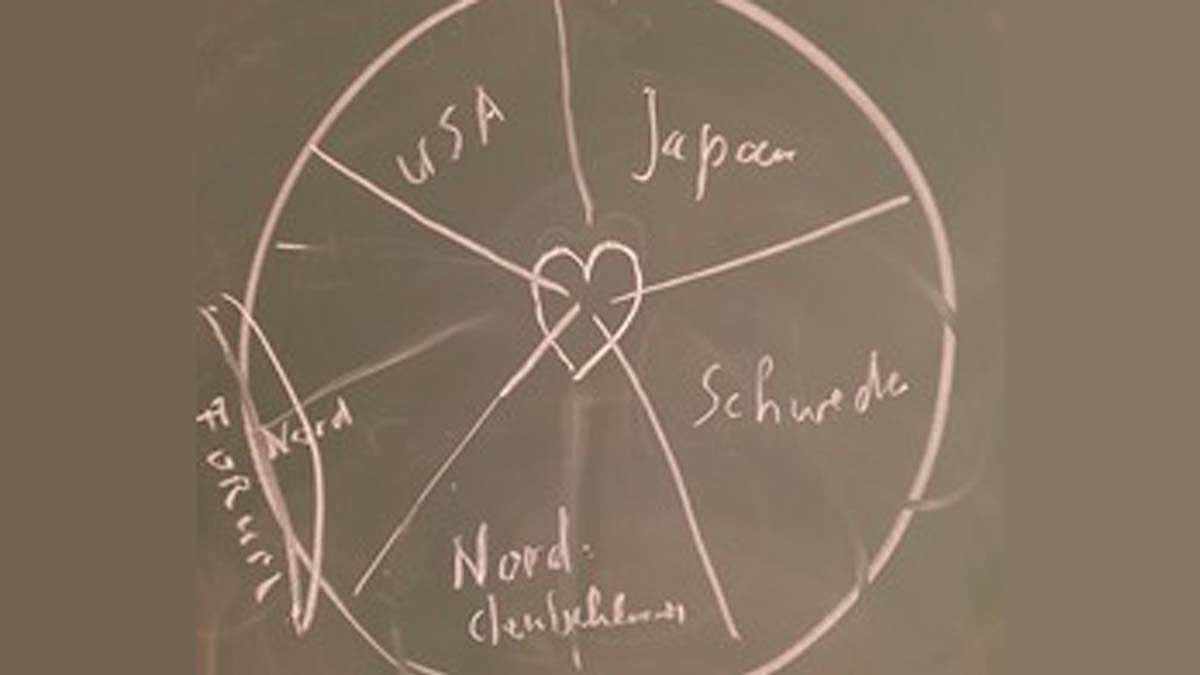 USA
Japan
Schweden
Nord
FORUM
Nord-
deutschland